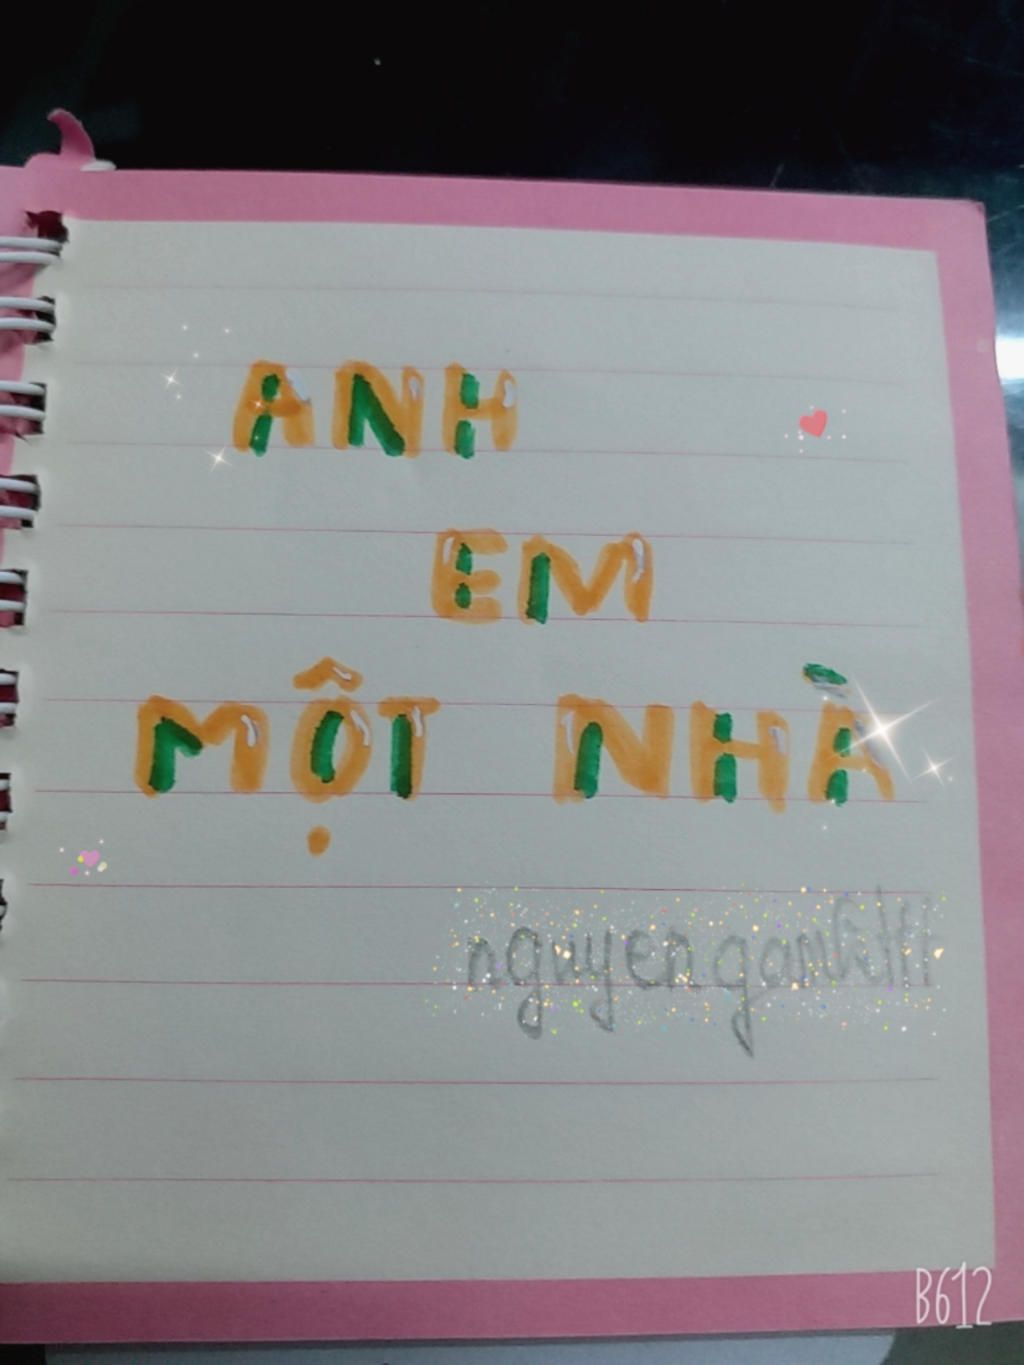 ANH
EM
MỘT NHÀ
nguyen
B612